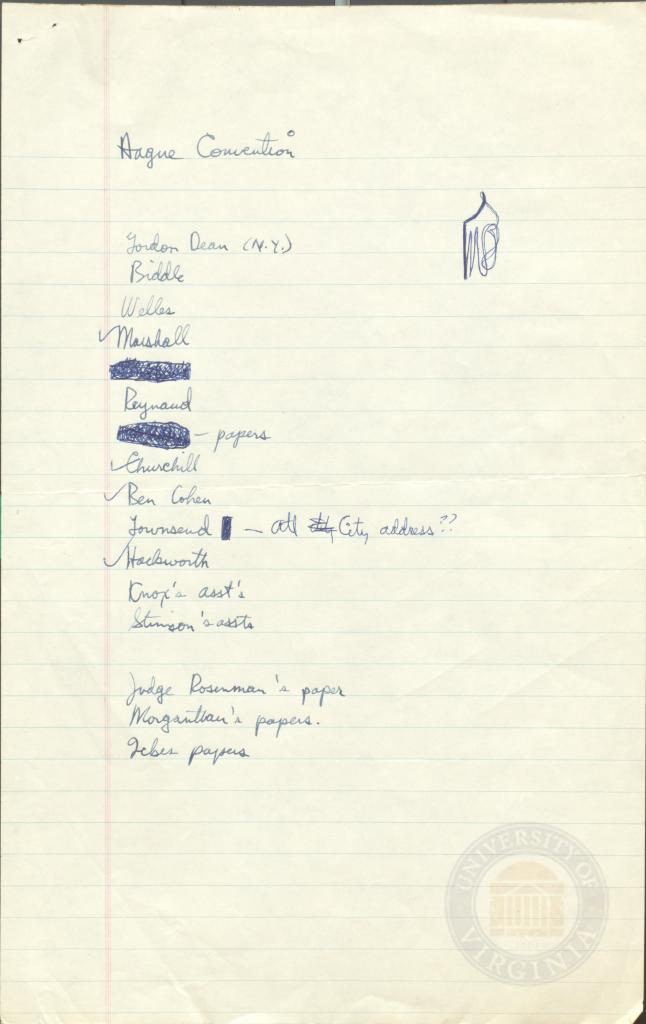 Hague Convention
Gordon Dean (N.Y.)
Biddle
Welles
✓Marshall
Reynaud
– papers
✓Churchill
✓Ben Cohen
Townsend – Atl City address??
✓Hackworth
Knox's asst's
Stimson's assts
Judge Rosenman's paper
Morganthau's papers.
Ickes papers
UNIVERSITY OF
VIRGINIA